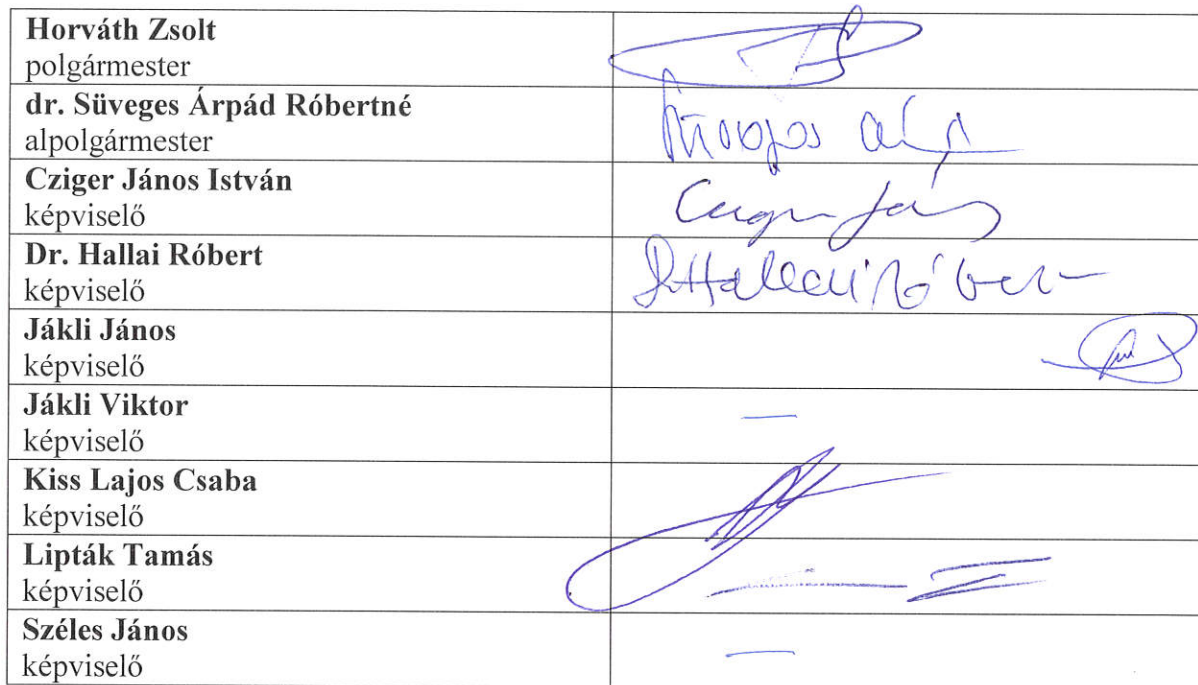 Horváth Zsolt
polgármester
dr. Süveges Árpád Róbertné
alpolgármester
Cziger János István
képviselő
Dr. Hallai Róbert
képviselő
Dr Hallai Róbert
Jákli János
képviselő
Jákli Viktor
képviselő
—
Kiss Lajos Csaba
képviselő
Lipták Tamás
képviselő
Széles János
képviselő
—